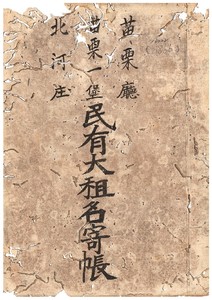 苗栗廳
苗栗一堡
北河庄
民有大租名寄帳